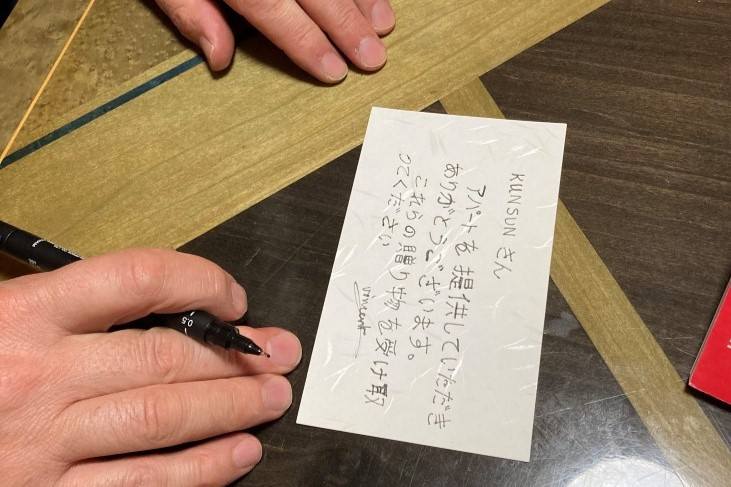 KUNSUN さん
アパートを提供していただき
ありがとうございます。
これらの贈り物を受け取
ってください
Vincent
0.5